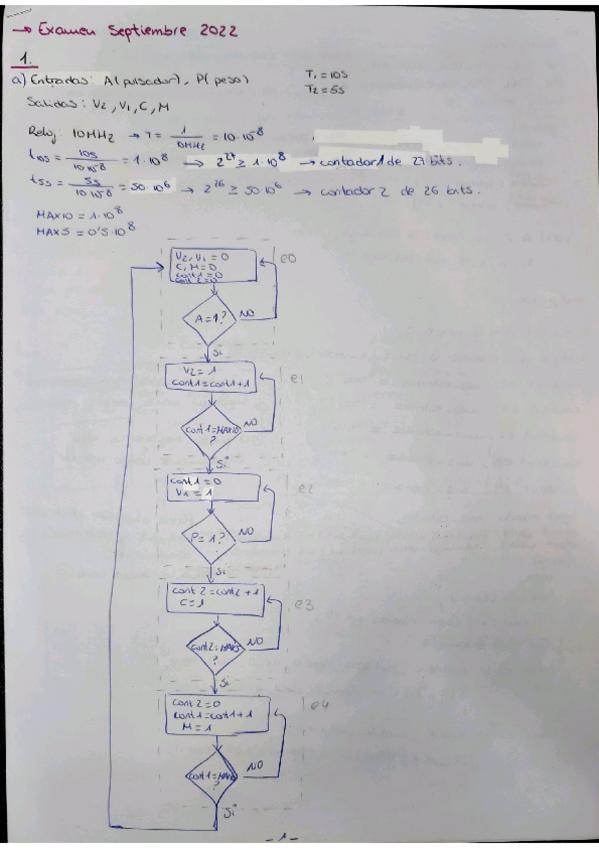 → Examen Septiembre 2022
1.
a) Entradas: A(pulsador), P(peso)
T1 = 10s
T2 = 5s
Salidas: V2, V1, C, M
Reloj: 10MHz → T = 1/10MHz = 10·10^-8
t10s = 10s/10·10^-8 = 1·10^8 → 2^27 ≥ 1·10^8 → contador 1 de 27 bits.
t5s = 5s/10·10^-8 = 50·10^6 → 2^26 ≥ 50·10^6 → contador 2 de 26 bits.
MAX10 = 1·10^8
MAX5 = 0'5·10^8
V2, V1 = 0
e0
C, M = 0
cont1 = 0
cont2 = 0
A = 1?
NO
Si
V2 = 1
e1
cont1 = cont1 + 1
cont1 = MAX10
NO
?
Si
cont1 = 0
e2
V1 = 1
P = 1?
NO
Si
cont2 = cont2 + 1
e3
C = 1
cont2 = MAX5
NO
?
Si
cont2 = 0
e4
cont1 = cont1 + 1
M = 1
NO
cont1 =
?
Si
- 1 -